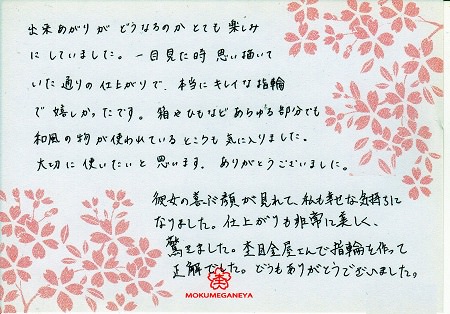 出来あがりが どうなるのか とても 楽しみ
に していました。一目見た時 思い描いて
いた通りの 仕上がりで、本当に キレイな指輪
で 嬉しかったです。箱やひもなど あらゆる部分でも
和風の物が使われている ところも 気に入りました。
大切に 使いたいと 思います。ありがとうございました。
彼女の喜ぶ顔が見れて、私も幸せな気持ちに
なりました。仕上がりも非常に美しく、
驚きました。杢目金屋さんで指輪を作って
正解でした。どうもありがとうございました。
MOKUMEGANEYA